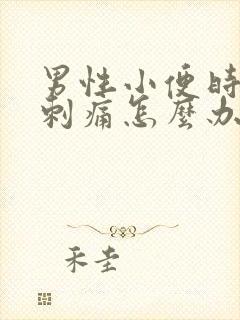 男性小便時
刺痛怎麼办
禾圭